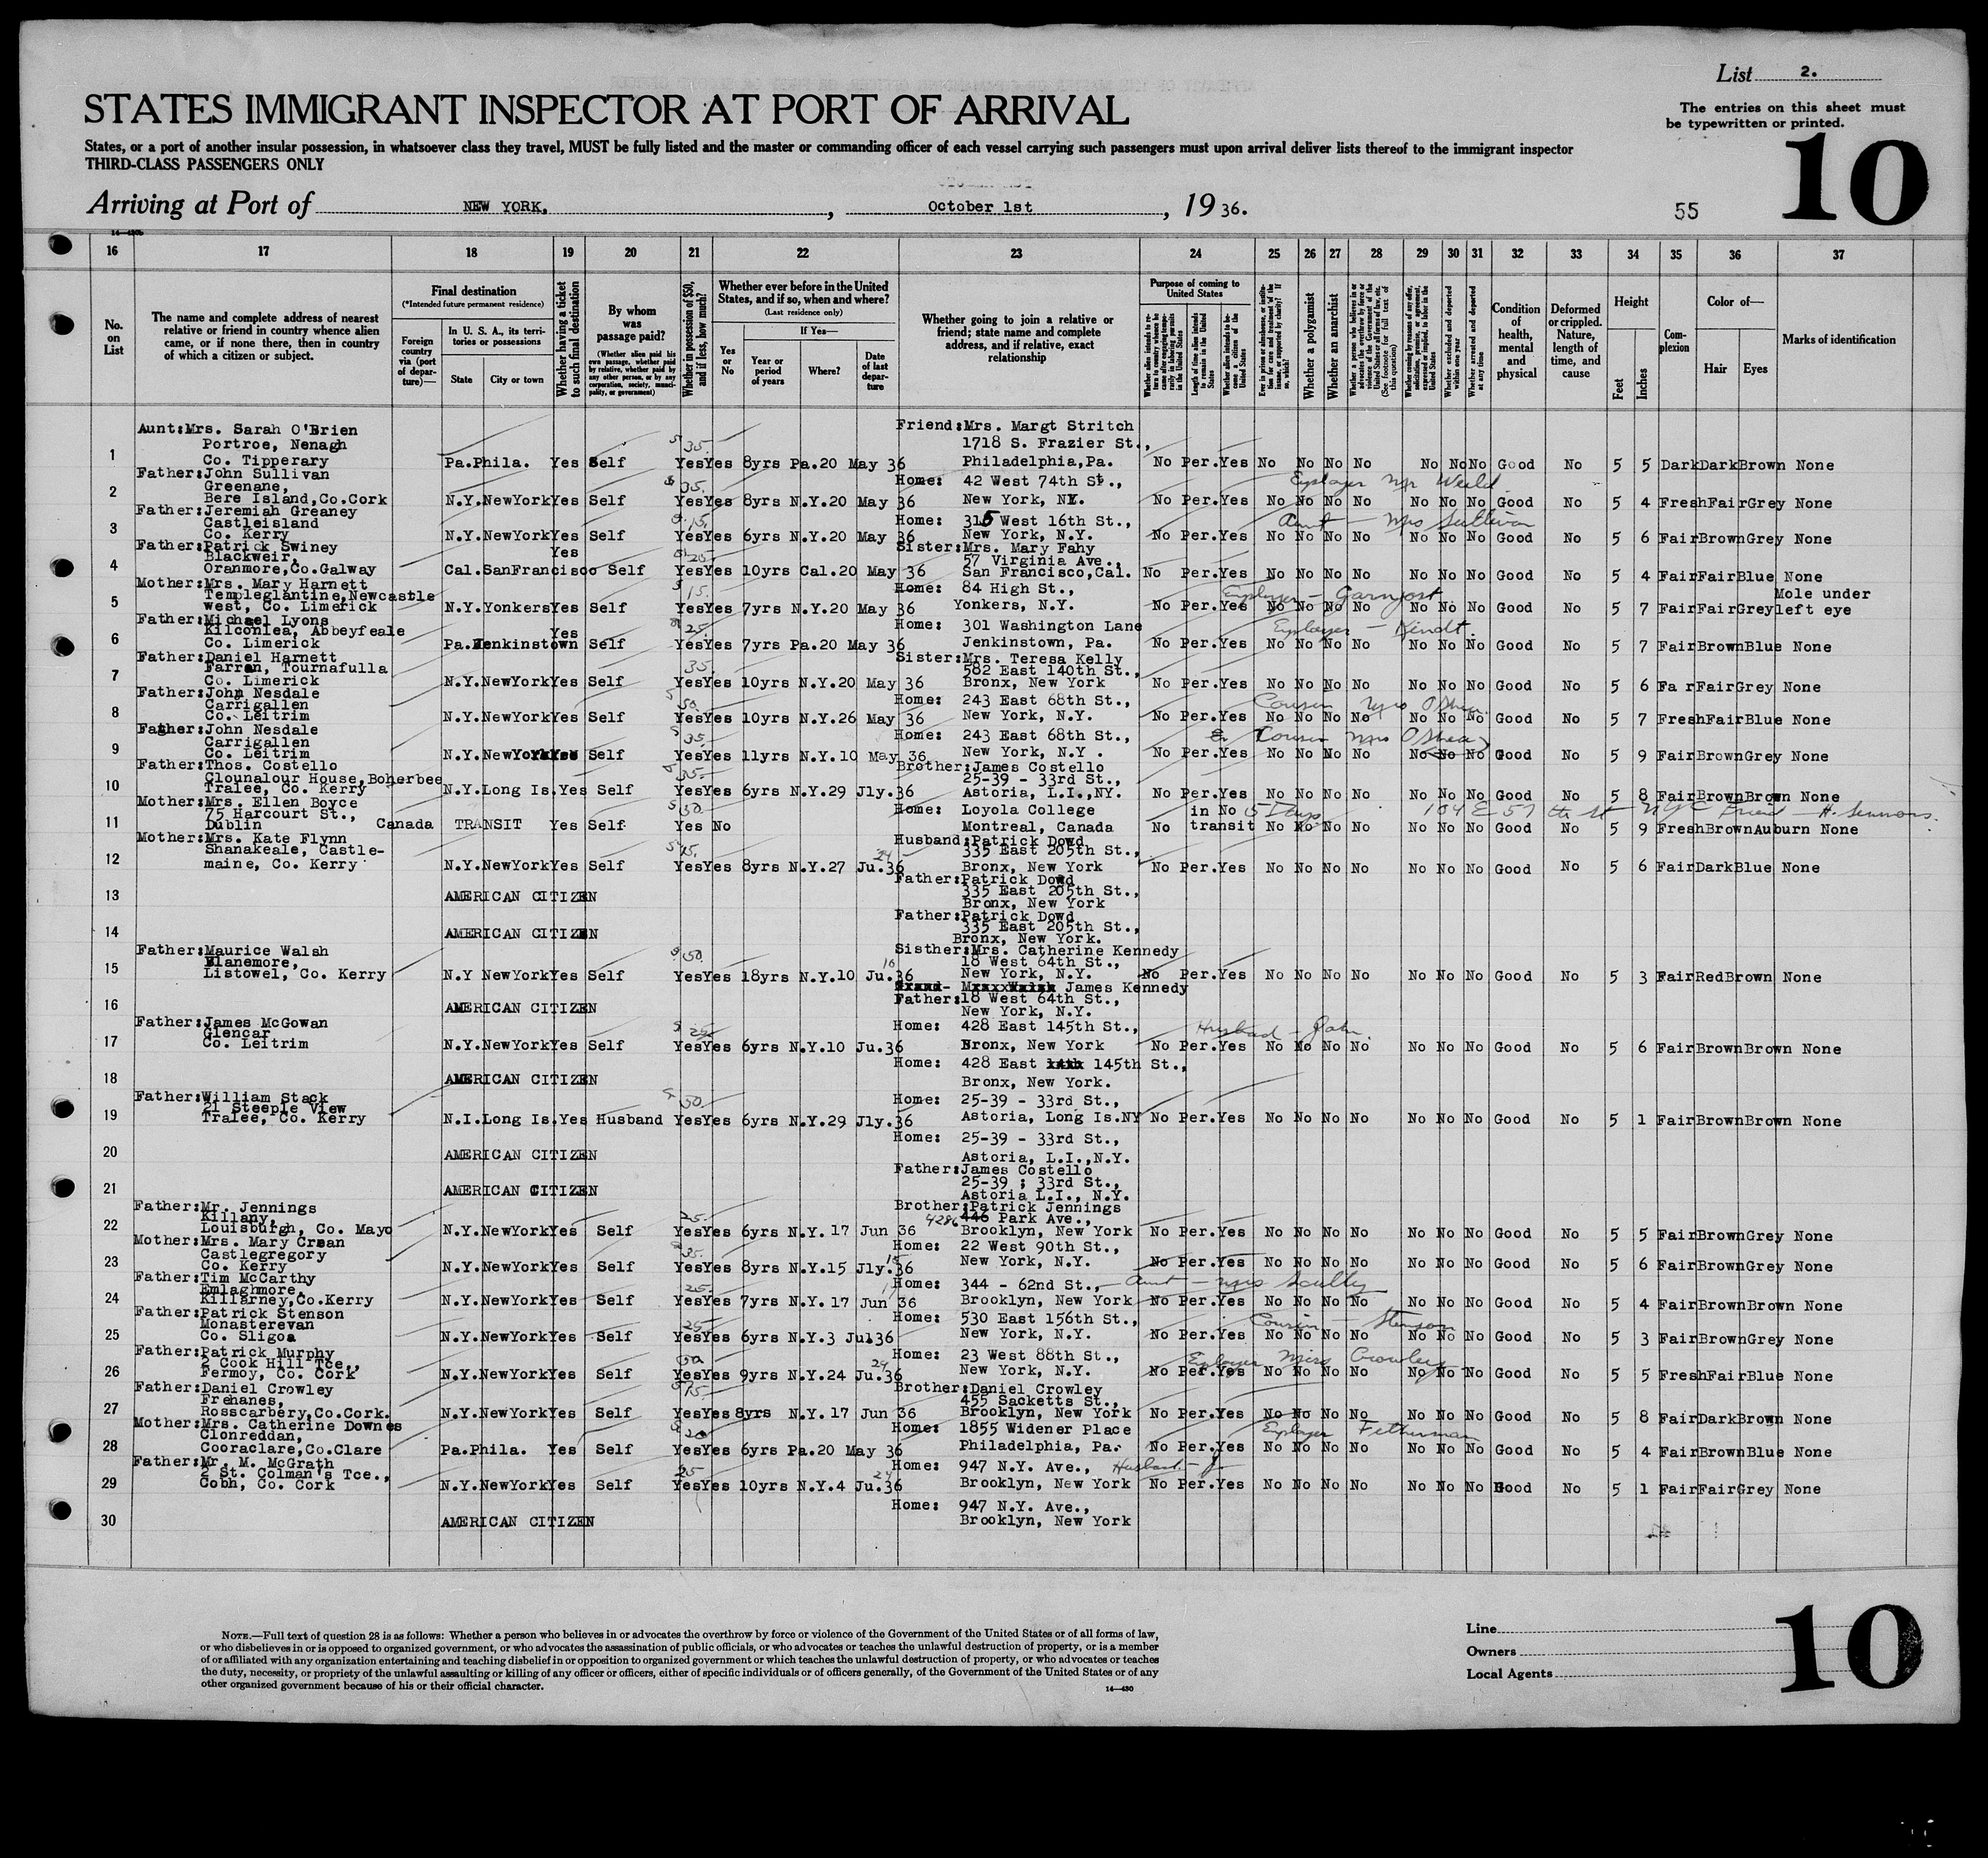 List 2.
The entries on this sheet must
be typewritten or printed.
STATES IMMIGRANT INSPECTOR AT PORT OF ARRIVAL
States, or a port of another insular possession, in whatsoever class they travel, MUST be fully listed and the master or commanding officer of each vessel carrying such passengers must upon arrival deliver lists thereof to the immigrant inspector
THIRD-CLASS PASSENGERS ONLY
10
Arriving at Port of NEW YORK, , October 1st , 1936.
55
16 17 18 19 20 21 22 23 24 25 26 27 28 29 30 31 32 33 34 35 36 37
No. on List
The name and complete address of nearest relative or friend in country whence alien came, or if none there, then in country of which a citizen or subject.
Final destination
(*Intended future permanent residence)
Foreign country via (port of departure)—
In U. S. A., its territories or possessions
State
City or town
Whether having a ticket to such final destination
By whom was passage paid?
(Whether alien paid his own passage, whether paid by relative, whether paid by any other person, or by any corporation, society, municipality, or government)
Whether in possession of $50, and if less, how much?
Whether ever before in the United States, and if so, when and where?
(Last residence only)
Yes or No
If Yes—
Year or period of years
Where?
Date of last departure
Whether going to join a relative or friend; state name and complete address, and if relative, exact relationship
Purpose of coming to United States
Length of time alien intends to remain in the United States
Whether alien intends to become a citizen of the United States
Whether a polygamist
Whether an anarchist
Whether excluded and deported within one year
Whether arrested and deported at any time
Condition of health, mental and physical
Deformed or crippled. Nature, length of time, and cause
Height
Feet
Inches
Complexion
Color of—
Hair
Eyes
Marks of identification
Aunt:Mrs. Sarah O'Brien Friend:Mrs. Margt Stritch
Portroe, Nenagh 35. 1718 S. Frazier St.,
1 Co. Tipperary Pa.Phila. Yes Self YesYes 8yrs Pa.20 May 36 Philadelphia,Pa. No Per.Yes No No No No No No No Good No 5 5 Dark Dark Brown None
Father:John Sullivan Home: 42 West 74th St.,
Greenane, 35.
2 Bere Island,Co.Cork N.Y.NewYorkYes Self YesYes 8yrs N.Y.20 May 36 New York, NY. No Per.Yes No No No No No No No Good No 5 4 Fresh Fair Grey None
Father:Jeremiah Greaney Home: 315 West 16th St., Aunt - Mrs Sullivan
Castleisland 15.
3 Co. Kerry N.Y.NewYorkYes Self YesYes 6yrs N.Y.20 May 36 New York, N.Y. No Per.Yes No No No No No No No Good No 5 6 Fair Brown Grey None
Father:Patrick Swiney Yes Sister:Mrs. Mary Fahy
Blackweir, 20 57 Virginia Ave.,
4 Oranmore,Co.Galway Cal.SanFrancisco Self YesYes 10yrs Cal.20 May 36 San Francisco,Cal. No Per.Yes No No No No No No No Good No 5 4 Fair Fair Blue None
Mother:Mrs. Mary Harnett Home: 84 High St.,
Templeglantine,Newcastle 15. Mole under
5 west, Co. Limerick N.Y.YonkersYes Self YesYes 7yrs N.Y.20 May 36 Yonkers, N.Y. No Per.Yes No No No No No No No Good No 5 7 Fair Fair Grey left eye
Father:Michael Lyons Home: 301 Washington Lane
Kilconlea, Abbeyfeale Yes 25.
6 Co. Limerick Pa.Jenkinstown Self YesYes 7yrs Pa.20 May 36 Jenkinstown, Pa. No Per.Yes No No No No No No No Good No 5 7 Fair Brown Blue None
Father:Daniel Harnett Sister:Mrs. Teresa Kelly
Farran, Tournafulla 35. 582 East 140th St.,
7 Co. Limerick N.Y.NewYorkYes Self YesYes 10yrs N.Y.20 May 36 Bronx, New York No Per.Yes No No No No No No No Good No 5 6 Fa r Fair Grey None
Father:John Nesdale Home: 243 East 68th St., Cousin Mrs O'Shea
Carrigallen 50.
8 Co. Leitrim N.Y.NewYorkYes Self YesYes 10yrs N.Y.26 May 36 New York, N.Y. No Per.Yes No No No No No No No Good No 5 7 Fresh Fair Blue None
Father:John Nesdale Home: 243 East 68th St., Cousin Mrs O'Shea
Carrigallen 35
9 Co. Leitrim N.Y.NewYorkYes Self YesYes 11yrs N.Y.10 May 36 New York, N.Y . No Per.Yes No No No No No No No Good No 5 9 Fair Brown Grey None
Father:Thos. Costello Brother:James Costello
Clounalour House,Boherbee 35. 25-39 - 33rd St.,
10 Tralee, Co. Kerry N.Y.Long Is.Yes Self YesYes 6yrs N.Y.29 Jly.36 Astoria, L.I.,NY. No Per.Yes No No No No No No No Good No 5 8 Fair Brown Brown None
Mother:Mrs. Ellen Boyce Home: Loyola College in No 5 Days 104 E 57 th st - NYC Friend - H. Simmons.
75 Harcourt St., 50.
11 Dublin Canada TRANSIT Yes Self Yes No Montreal, Canada No transit No No No No No No No Good No 5 9 Fresh Brown Auburn None
Mother:Mrs. Kate Flynn Husband:Patrick Dowd
Shanakeale, Castle- 75. 24 335 East 205th St.,
12 maine, Co. Kerry N.Y.NewYorkYes Self YesYes 8yrs N.Y.27 Ju.36 Bronx, New York No Per.Yes No No No No No No No Good No 5 6 Fair Dark Blue None
Father:Patrick Dowd
13 AMERICAN CITIZEN 335 East 205th St.,
Bronx, New York
Father:Patrick Dowd
14 AMERICAN CITIZEN 335 East 205th St.,
Bronx, New York.
Father:Maurice Walsh Sisther:Mrs. Catherine Kennedy
Blanemore, 50. 10 18 West 64th St.,
15 Listowel, Co. Kerry N.Y NewYorkYes Self YesYes 18yrs N.Y.10 Ju.36 New York, N.Y. No Per.Yes No No No No No No No Good No 5 3 Fair Red Brown None
James Kennedy
16 AMERICAN CITIZEN Father:18 West 64th St.,
New York, N.Y.
Father:James McGowan Home: 428 East 145th St., Husband - John
Glencar
17 Co. Leitrim N.Y.NewYorkYes Self YesYes 6yrs N.Y.10 Ju.36 Bronx, New York No Per.Yes No No No No No No No Good No 5 6 Fair Brown Brown None
Home: 428 East 145th St.,
18 AMERICAN CITIZEN Bronx, New York.
Father:William Stack Home: 25-39 - 33rd St.,
21 Steeple View 50.
19 Tralee, Co. Kerry N.I.Long Is.Yes Husband YesYes 6yrs N.Y.29 Jly.36 Astoria, Long Is.NY No Per.Yes No No No No No No No Good No 5 1 Fair Brown Brown None
Home: 25-39 - 33rd St.,
20 AMERICAN CITIZEN Astoria, L.I.,N.Y.
Father:James Costello
21 AMERICAN CITIZEN 25-39 ; 33rd St.,
Astoria L.I., N.Y.
Father:Mr. Jennings Brother:Patrick Jennings
Killany, 25. 4286 446 Park Ave.,
22 Louisburgh, Co. Mayo N.Y.NewYorkYes Self YesYes 6yrs N.Y. 17 Jun 36 Brooklyn, New York No Per.Yes No No No No No No No Good No 5 5 Fair Brown Grey None
Mother:Mrs. Mary Crean Home: 22 West 90th St.,
Castlegregory 35. 15
23 Co. Kerry N.Y.NewYorkYes Self YesYes 8yrs N.Y.15 Jly.36 New York, N.Y. No Per.Yes No No No No No No No Good No 5 6 Fair Brown Grey None
Father:Tim McCarthy Home: 344 - 62nd St., - Aunt - Mrs Scully
Emlaghmore, 25. 17
24 Killarney,Co.Kerry N.Y.NewYorkYes Self YesYes 7yrs N.Y. 17 Jun 36 Brooklyn, New York No Per.Yes No No No No No No No Good No 5 4 Fair Brown Brown None
Father:Patrick Stenson Home: 530 East 156th St., Cousin - Stenson
Monasterevan 25.
25 Co. Sligoa N.Y.NewYorkYes Self YesYes 6yrs N.Y.3 Jul36 New York, N.Y. No Per.Yes No No No No No No No Good No 5 3 Fair Brown Grey None
Father:Patrick Murphy Home: 23 West 88th St., Eployer Miss Crowley
2 Cook Hill Tce., 50 24
26 Fermoy, Co. Cork N.Y.NewYorkYes Self YesYes 9yrs N.Y.24 Ju.36 New York, N.Y. No Per.Yes No No No No No No No Good No 5 5 Fresh Fair Blue None
Father:Daniel Crowley Brother:Daniel Crowley
Frehanes, 75. 455 Sacketts St.,
27 Rosscarbery,Co.Cork. N.Y.NewYorkYes Self YesYes 8yrs N.Y. 17 Jun 36 Brooklyn, New York No Per.Yes No No No No No No No Good No 5 8 Fair Dark Brown None
Mother:Mrs. Catherine Downes Home: 1855 Widener Place Eployer Fetterman
Clonreddan, 20
28 Cooraclare,Co.Clare Pa.Phila. Yes Self YesYes 6yrs Pa.20 May 36 Philadelphia, Pa. No Per.Yes No No No No No No No Good No 5 4 Fair Brown Blue None
Father:Mr. M. McGrath Home: 947 N.Y. Ave., Husband - J
2 St. Colman's Tce., 25 24
29 Cobh, Co. Cork N.Y.NewYorkYes Self YesYes 10yrs N.Y.4 Ju.36 Brooklyn, New York No Per.Yes No No No No No No No Good No 5 1 Fair Fair Grey None
Home: 947 N.Y. Ave.,
30 AMERICAN CITIZEN Brooklyn, New York
NOTE.—Full text of question 28 is as follows: Whether a person who believes in or advocates the overthrow by force or violence of the Government of the United States or of all forms of law,
or who disbelieves in or is opposed to organized government, or who advocates the assassination of public officials, or who advocates or teaches the unlawful destruction of property, or is a member
of or affiliated with any organization entertaining and teaching disbelief in or opposition to organized government or which teaches the unlawful destruction of property, or who advocates or teaches
the duty, necessity, or propriety of the unlawful assaulting or killing of any officer or officers, either of specific individuals or of officers generally, of the Government of the United States or of any
other organized government because of his or their official character.
14—430
Line
Owners
Local Agents
10